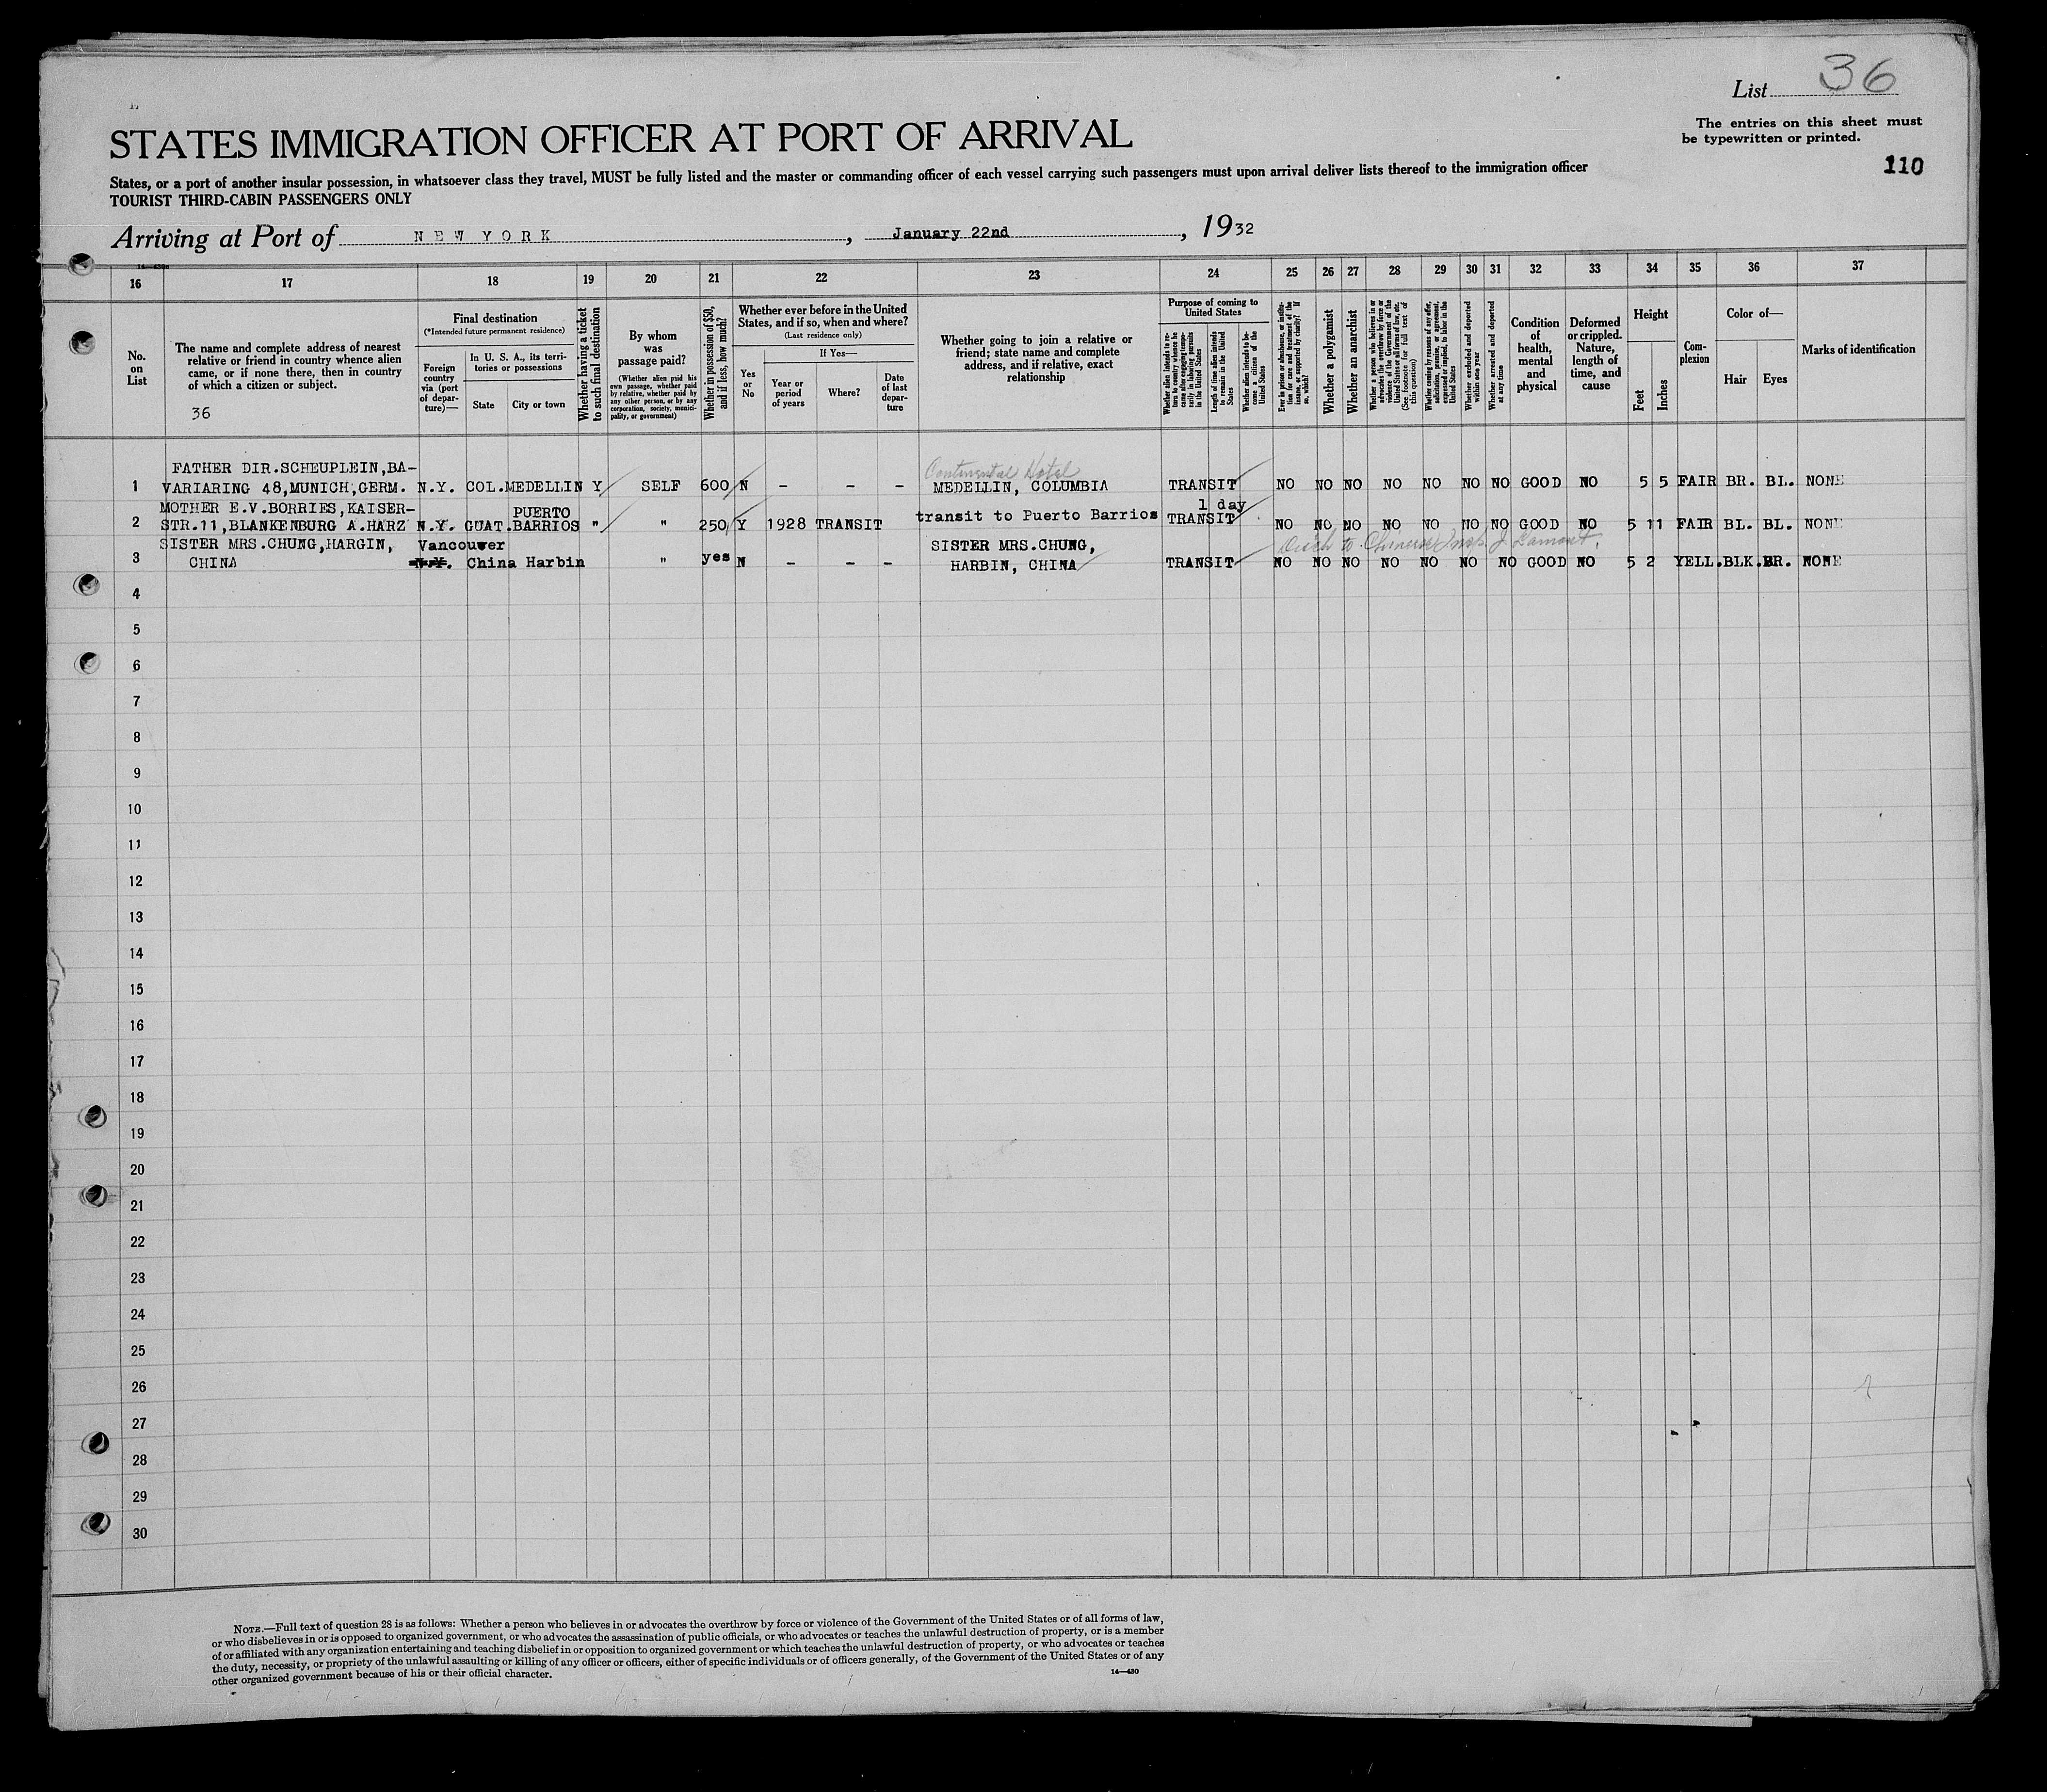 List 36
The entries on this sheet must
be typewritten or printed.
110
STATES IMMIGRATION OFFICER AT PORT OF ARRIVAL
States, or a port of another insular possession, in whatsoever class they travel, MUST be fully listed and the master or commanding officer of each vessel carrying such passengers must upon arrival deliver lists thereof to the immigration officer
TOURIST THIRD-CABIN PASSENGERS ONLY
Arriving at Port of NEW YORK, January 22nd, 1932
16 17 18 19 20 21 22 23 24 25 26 27 28 29 30 31 32 33 34 35 36 37
No. on List
The name and complete address of nearest
relative or friend in country whence alien
came, or if none there, then in country
of which a citizen or subject.
36
Final destination
(*Intended future permanent residence)
Foreign country via (port of departure)—
In U. S. A., its territories or possessions
State
City or town
Whether having a ticket to such final destination
By whom was passage paid?
(Whether alien paid his own passage, whether paid by relative, whether paid by any other person, or by any corporation, society, municipality, or government)
Whether in possession of $50, and if less, how much?
Whether ever before in the United States, and if so, when and where?
(Last residence only)
Yes or No
If Yes—
Year or period of years
Where?
Date of last departure
Whether going to join a relative or
friend; state name and complete
address, and if relative, exact
relationship
Purpose of coming to United States
Whether alien intends to return to country whence he came after engaging temporarily in laboring pursuits in the United States
Length of time alien intends to remain in the United States
Whether alien intends to become a citizen of the United States
Ever in prison or almshouse, or institution for care and treatment of the insane, or supported by charity? If so, which?
Whether a polygamist
Whether an anarchist
Whether a person who believes in or advocates the overthrow by force or violence of the Government of the United States or all forms of law, etc. (See footnote for full text of this question)
Whether coming by reasons of any offer, solicitation, promise, or agreement, expressed or implied, to labor in the United States
Whether excluded and deported within one year
Whether arrested and deported at any time
Condition of health, mental and physical
Deformed or crippled. Nature, length of time, and cause
Height
Feet
Inches
Complexion
Color of—
Hair
Eyes
Marks of identification
FATHER DIR.SCHEUPLEIN,BA- Continental Hotel
1 VARIARING 48,MUNICH,GERM. N.Y. COL. MEDELLIN Y SELF 600 N - - - MEDELLIN, COLUMBIA TRANSIT NO NO NO NO NO NO NO GOOD NO 5 5 FAIR BR. BL. NONE
MOTHER E.V.BORRIES,KAISER- PUERTO transit to Puerto Barrios 1 day
2 STR.11,BLANKENBURG A.HARZ N.Y. GUAT. BARRIOS " " 250 Y 1928 TRANSIT TRANSIT NO NO NO NO NO NO NO GOOD NO 5 11 FAIR BL. BL. NONE
SISTER MRS.CHUNG,HARGIN, Vancouver SISTER MRS.CHUNG,
3 CHINA N.Y. China Harbin " yes N - - - HARBIN, CHINA TRANSIT NO NO NO NO NO NO NO GOOD NO 5 2 YELL. BLK. BR. NONE
4
5
6
7
8
9
10
11
12
13
14
15
16
17
18
19
20
21
22
23
24
25
26
27
28
29
30
NOTE.—Full text of question 28 is as follows: Whether a person who believes in or advocates the overthrow by force or violence of the Government of the United States or of all forms of law,
or who disbelieves in or is opposed to organized government, or who advocates the assassination of public officials, or who advocates or teaches the unlawful destruction of property, or is a member
of or affiliated with any organization entertaining and teaching disbelief in or opposition to organized government or which teaches the unlawful destruction of property, or who advocates or teaches
the duty, necessity, or propriety of the unlawful assaulting or killing of any officer or officers, either of specific individuals or of officers generally, of the Government of the United States or of any
other organized government because of his or their official character.
14—430